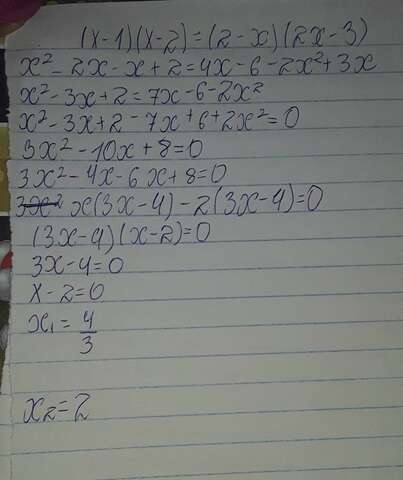 (x-1)(x-2)=(2-x)(2x-3)
x²-2x-x+2=4x-6-2x²+3x
x²-3x+2=7x-6-2x²
x²-3x+2-7x+6+2x²=0
3x²-10x+8=0
3x²-4x-6x+8=0
x(3x-4)-2(3x-4)=0
(3x-4)(x-2)=0
3x-4=0
x-2=0
x₁=4/3
x₂=2